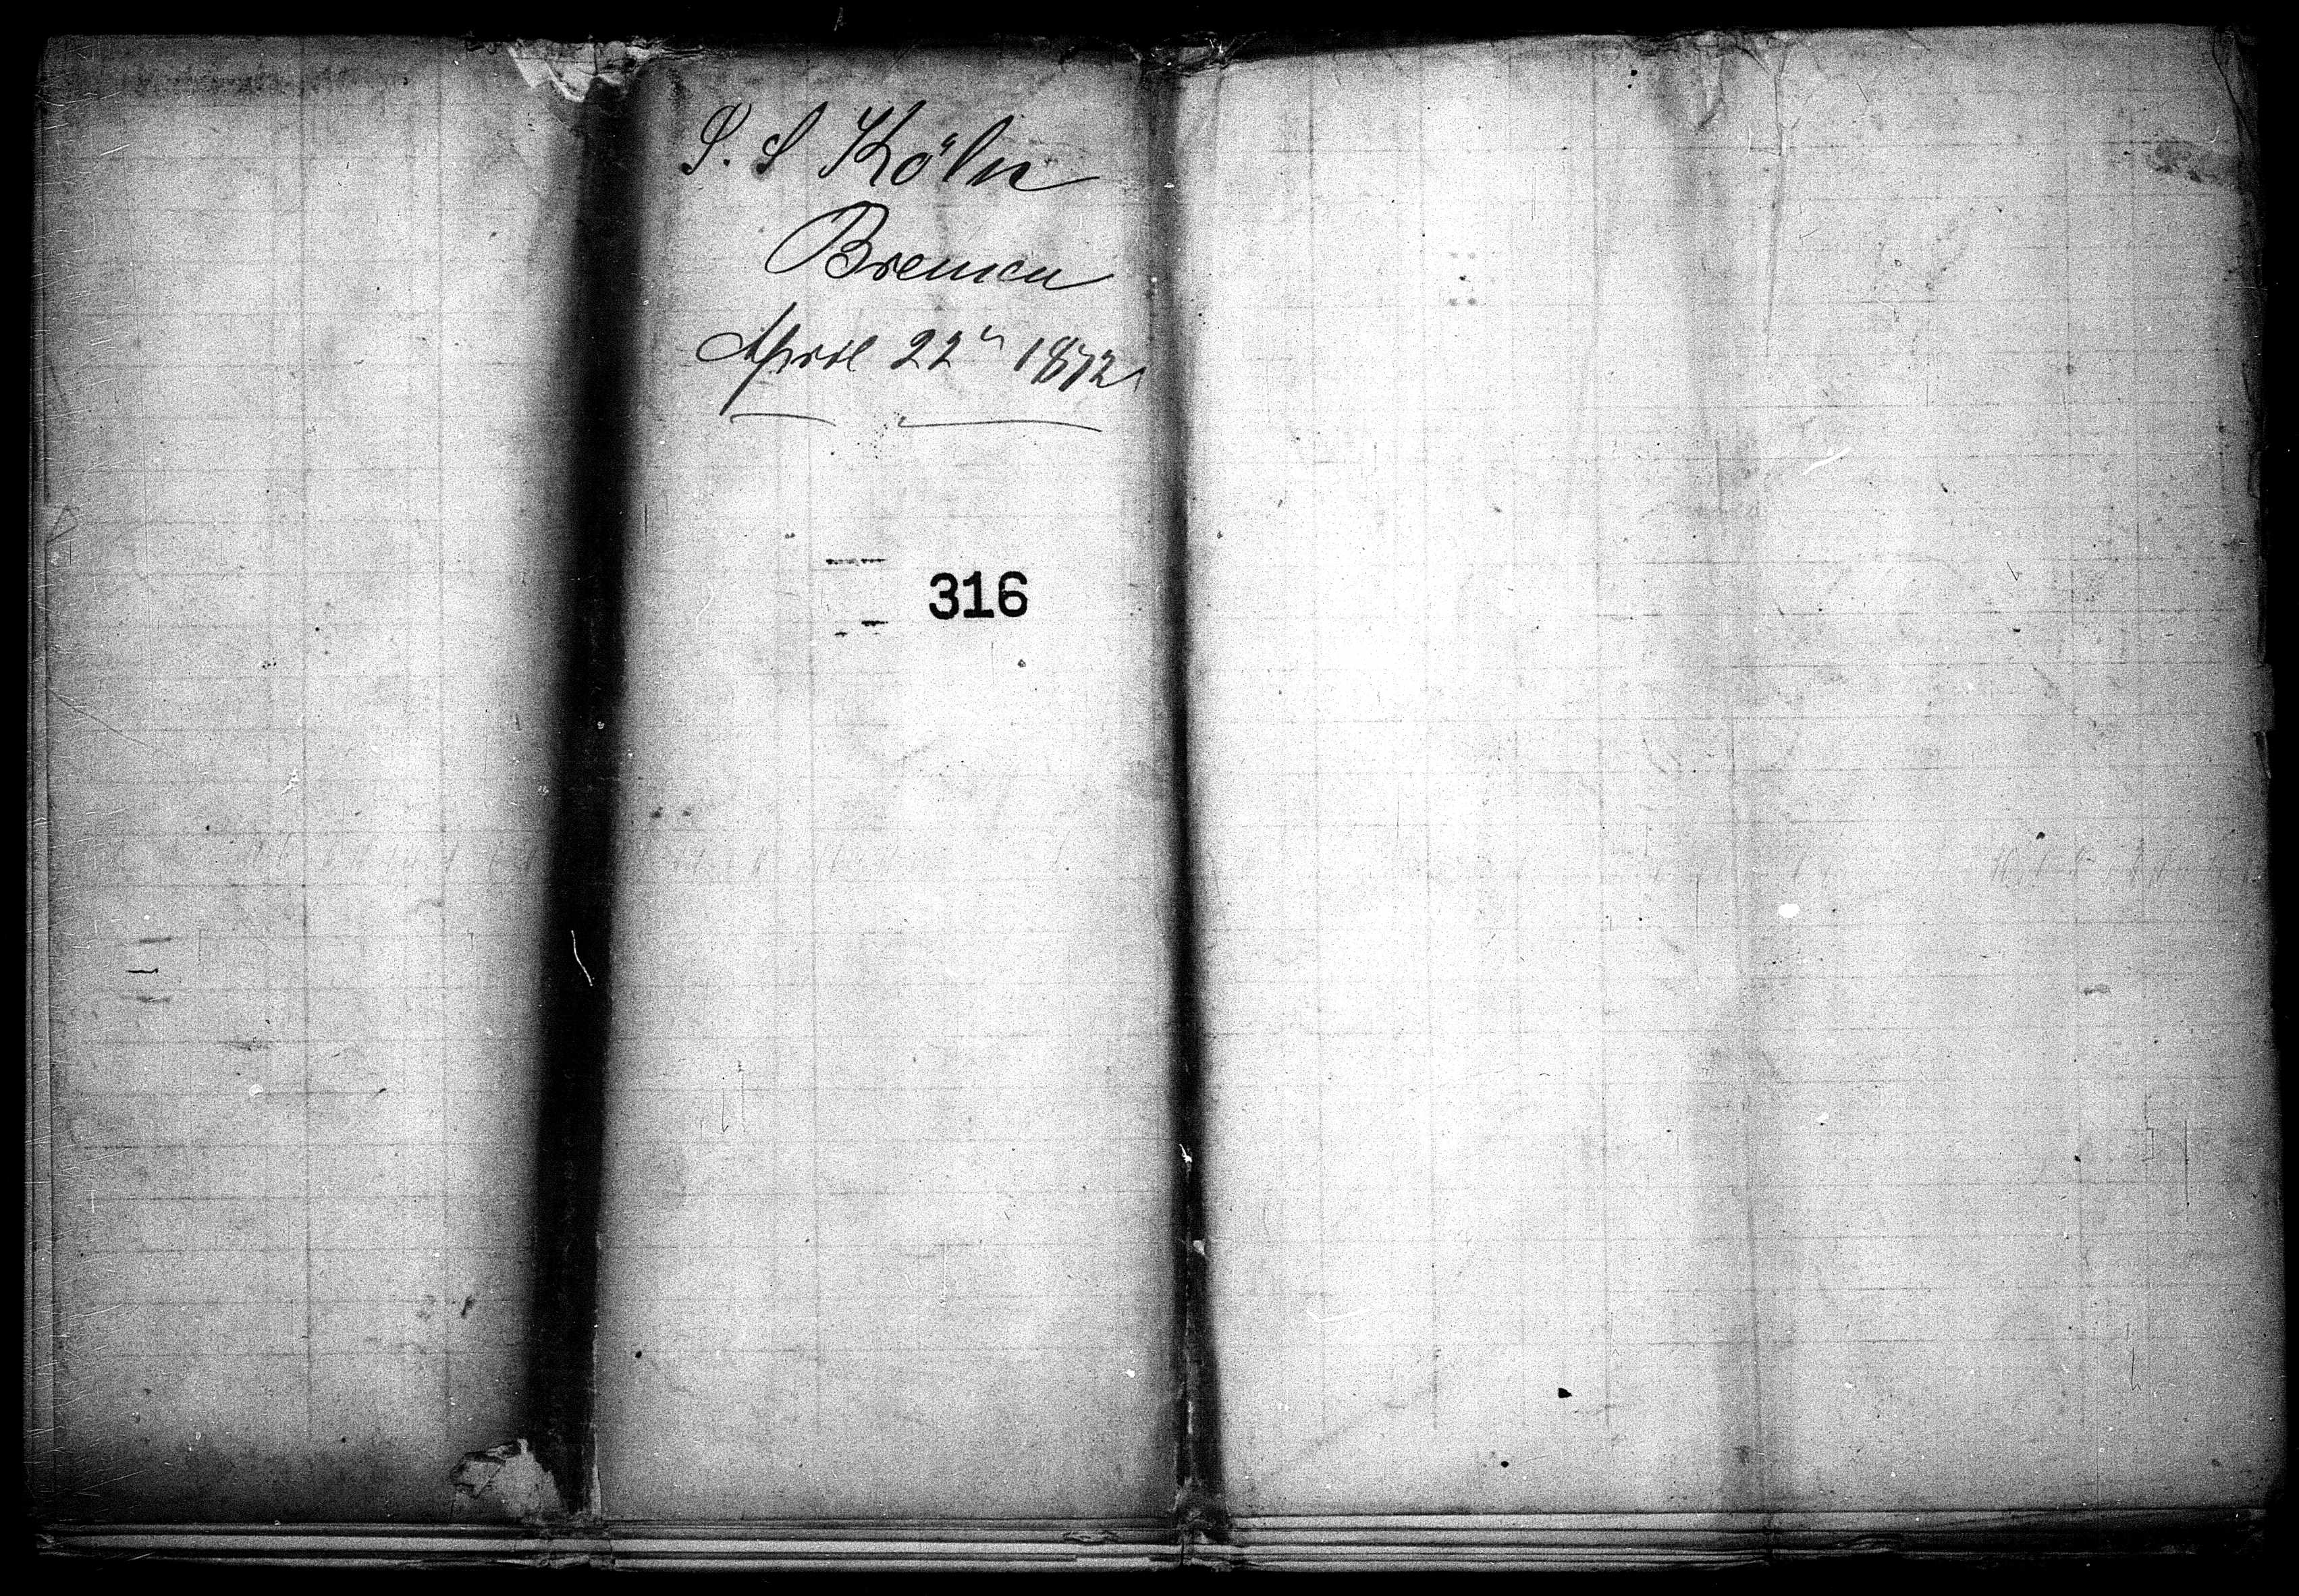 S. S Köln
Bremen
April 22" 1872
316